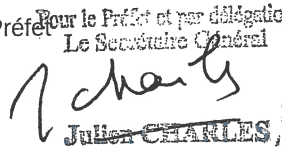 Préfet
Pour le Préfet et par délégation
Le Secrétaire Général
Julien CHARLES